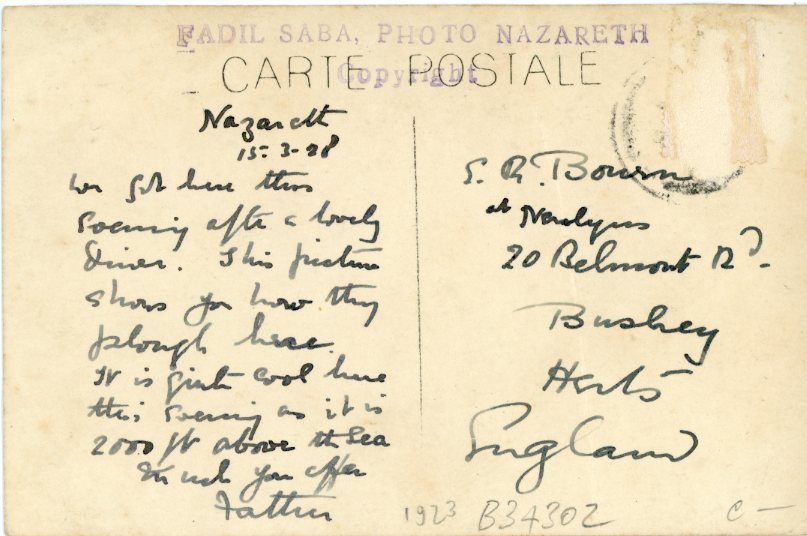 FADIL SABA, PHOTO NAZARETH
CARTE POSTALE
Copyright
Nazareth
15-3-28
We got here this
evening after a lovely
drive. This picture
shows you how they
plough here.
It is quite cool here
this evening as it is
2000 ft above the Sea
much you
Father
S. R. Bourn
at
20 Belmont Rd.
Bushey
Herts
England
1923 B34302 C-